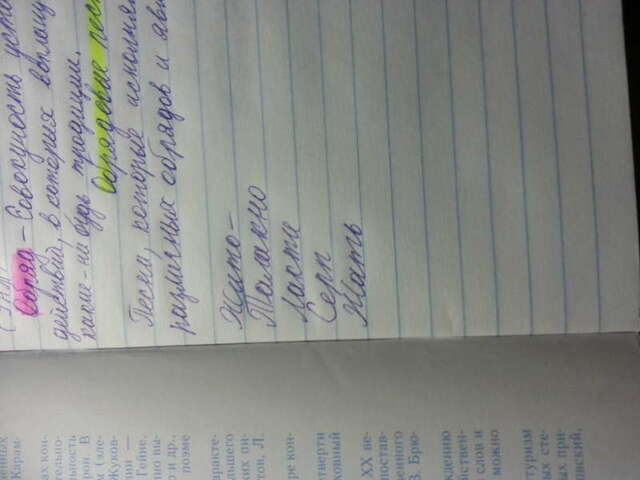 енных
Карам-
ах кон-
ительно-
льность
рон. В
м (эле-
Жуков-
нии —
Гейне,
но вы-
о и др.,
поэме
аракте-
льшего
ких пи-
тов, Л.
ре кон-
етверти
ховный
XX ве-
постав-
венного
В. Брю-
ждению
йствен-
слов и
можно
туризм
ых сте-
ых при-
овский,
Обряд – Совокупность уста
действий, в которых воплащ
какие-нибудь традиции.
Обрядовые песн
Песни, которые исполнял
различных обрядов и явл
Жито –
Талакно
Лакти
Серп
Жать